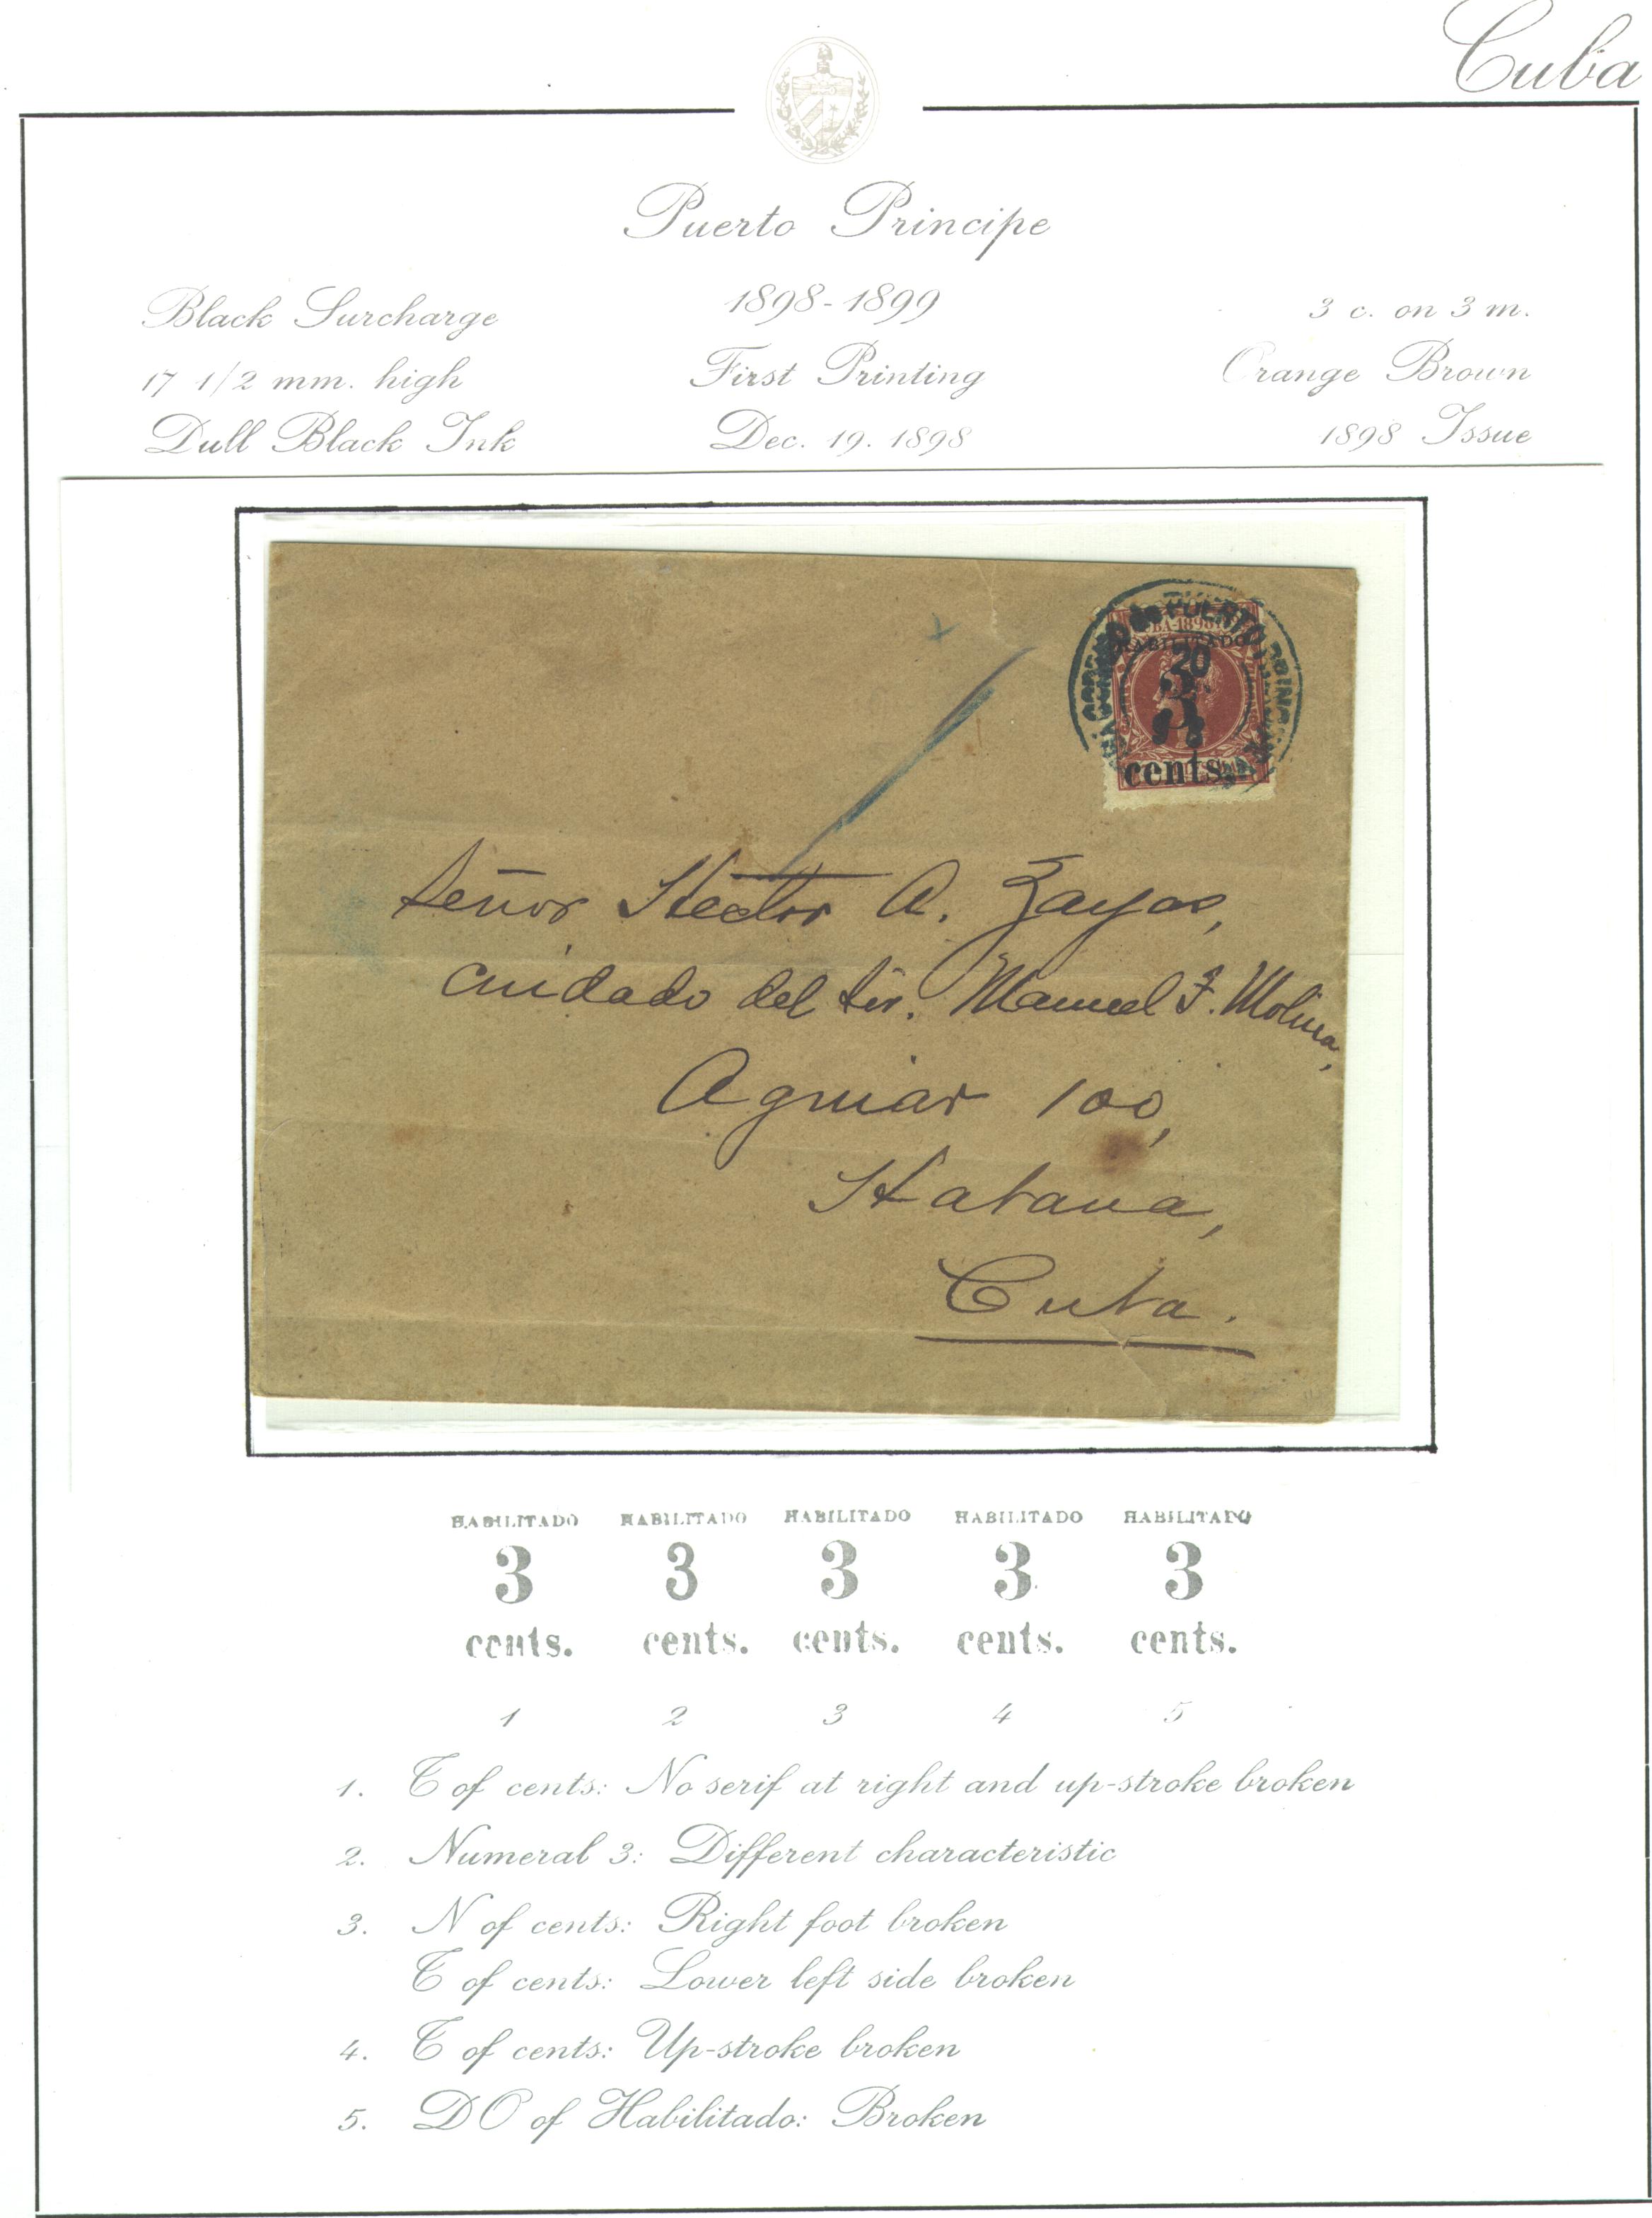 Cuba
Puerto Principe
Black Surcharge
17 1/2 mm. high
Dull Black Ink
1898-1899
First Printing
Dec. 19. 1898
3 c. on 3 m.
Orange Brown
1898 Issue
PUERTO
HABILITADO
20
3
cents.
Señor Hector A. Zayas,
cuidado del Sr. Manuel F. Molina,
Aguiar 100,
Habana,
Cuba.
HABILITADO HABILITADO HABILITADO HABILITADO HABILITADO
3 3 3 3 3
cents. cents. cents. cents. cents.
1 2 3 4 5
1. T of cents: No serif at right and up-stroke broken
2. Numeral 3: Different characteristic
3. N of cents: Right foot broken
T of cents: Lower left side broken
4. T of cents: Up-stroke broken
5. DO of Habilitado: Broken